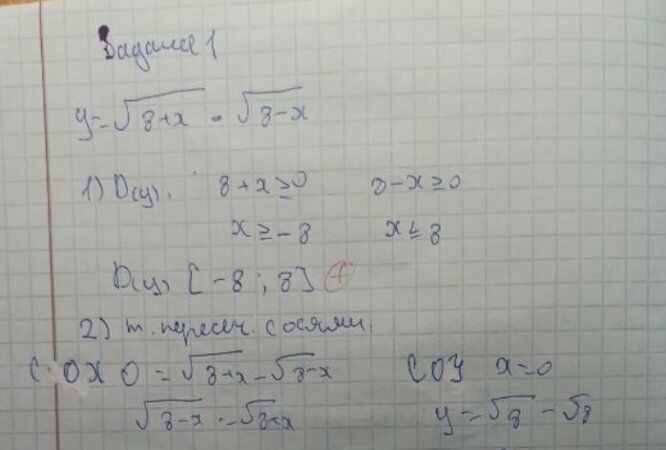 Задание 1
y=√8+x - √8-x
1) D(y): 8+x≥0 8-x≥0
x≥-8 x≤8
D(y) [-8; 8] +
2) т. пересеч. с осями.
С OX 0=√8+x-√8-x С OY x=0
√8-x=√8+x y=√8-√8